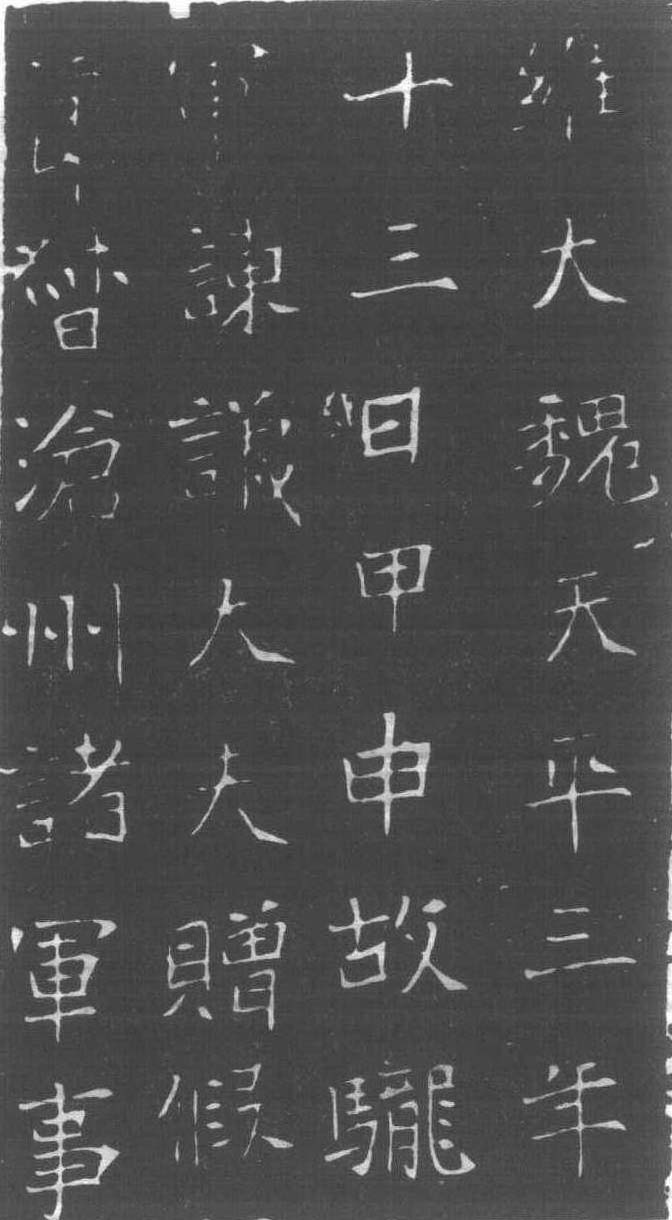 維大魏天平三年
十三日甲申故
軍諫議大夫贈假
節督滄州諸軍事